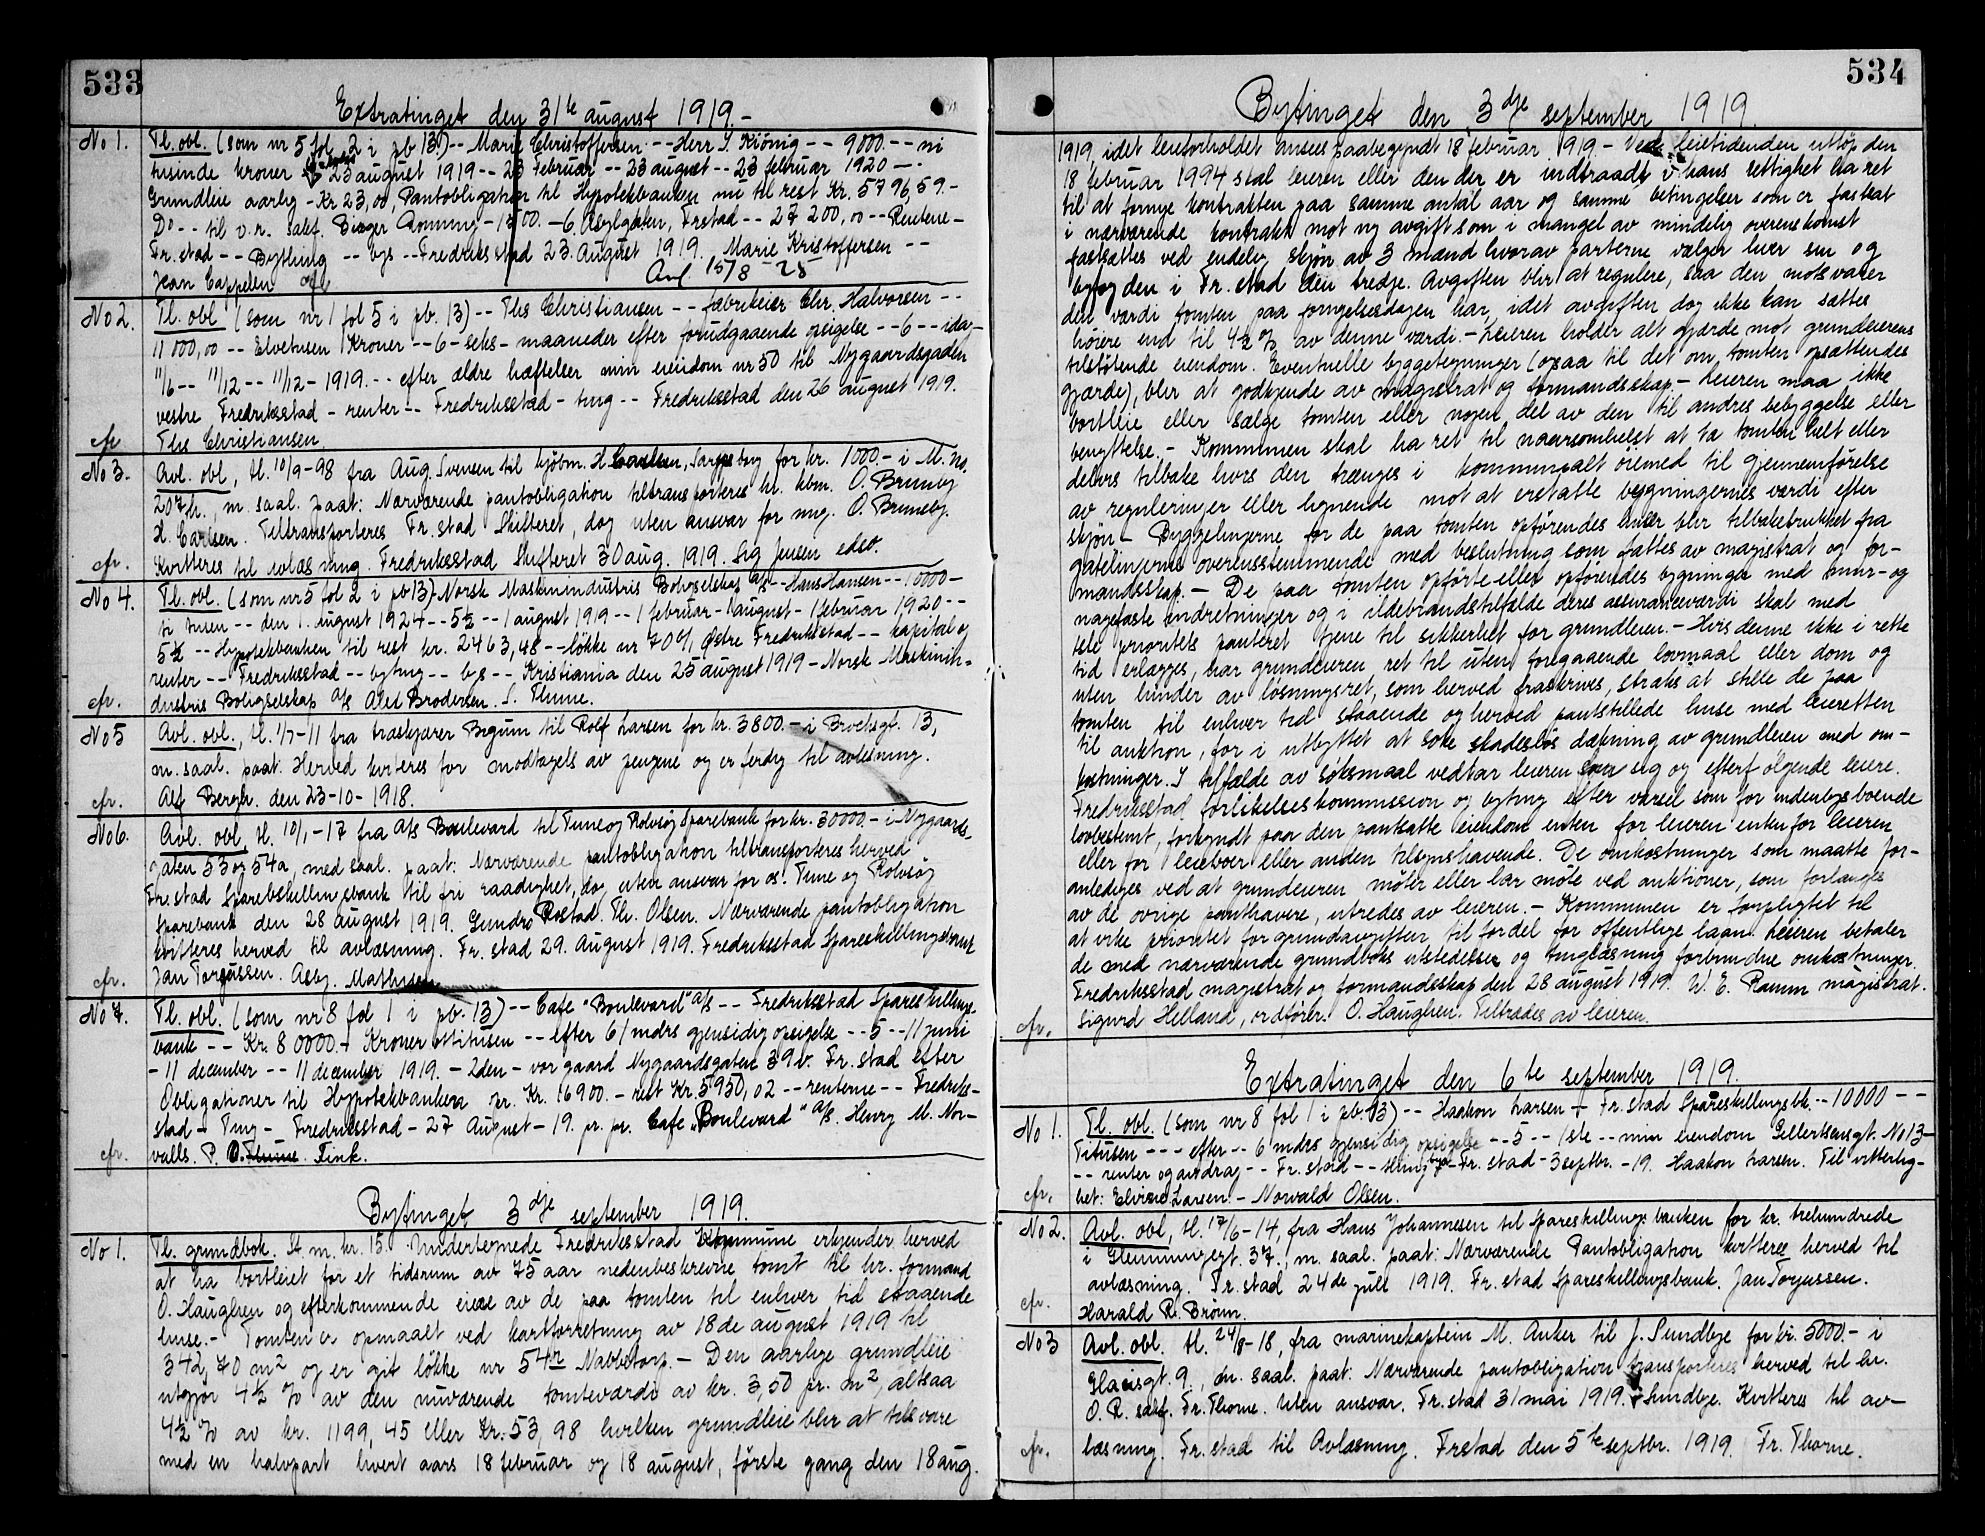 533
Extratinget den 31te august 1919.-
No 1. Tl. obl. (som nr 5 fol 2 i pb 13) -- Marie Christoffersen -- Herr I. Kiönig -- 9000. -- ni
tusinde kroner 23 august 1919 -- 23 Februar -- 23 august -- 23 februar 1920 --
Grundleie aarlig - Kr 23,00 Pantobligation til Hypotekbanken nu til rest Kr. 5796,59.-
Do -- til o.r. sakf. Birger Ronning - 1500. - 6 Asylgaten, Frstad -- 27 200,00 -- Renterne -
Fr.stad -- Bything -- bys -- Fredriksstad 23. August 1919. Marie Kristoffersen --
Jean Cappelen
Avl 15/8 - 25
No 2. Tl. obl (som nr 1 fol 5 i pb. 13) -- Ths Christiansen -- fabrikeier Chr. Halvorsen --
11 000,00 -- Elvetusen Kroner -- 6 - seks - maaneder efter forudgaaende opsigelse -- 6 -- idag -
11/6 -- 11/12 -- 11/12 - 1919. -- efter ældre hæftelser min eiendom nr 50 til Nygaardsgaden
vestre Fredriksstad - renter -- Fredriksstad - ting -- Fredriksstad den 26 august 1919.
cfr Ths Christiansen
No 3. Avl. obl, tl. 10/9-98 fra Aug. Svensen til kjøbm. H. Carlsen, Sarpsborg for kr. 1000.- i M. No.
207 h., m. saal. paat: Nærværende pantobligation tiltransporteres hr. kbm. O. Brunsby
H. Carlsen. Tiltransporteres Fr.stad Skifteret, dog uten ansvar for mig. O. Brunsby.
cfr. Kvitteres til avlæsning. Fredriksstad Skifteret 30 aug. 1919. Sig Jensen edso.
No 4. Tl. obl. (som nr 5 fol 2 i pb 13) - Norsk Maskinindustris Boligselskap a/s -- Hans Hansen -- 10000 -
ti tusen -- den 1. august 1924 -- 5½ -- 1 august 1919 -- 1 februar - 1 august - 1 februar 1920 --
5½ -- Hypotekbanken til rest kr. 2463,48 -- løkke nr 70 østre Fredriksstad -- kapital og
renter -- Fredriksstad -- byting -- bys -- Kristiania den 25 august 1919 - Norsk Maskinin-
cfr. dustris Boligselskap a/s Alex Brodersen. S. Thune.
No 5 Avl. obl., tl. 1/7-11 fra træskjærer Bryum til Rolf Larsen for kr. 3800.- i Brochsgt. 13,
m. saal. paat: Herved kviteres for modtagels av pengene og er ferdig til avlesning.
cfr. Alf Bergh. den 23-10-1918.
No 6. Avl. obl, tl. 10/1-17 fra a/s Boulevard til Tune og Rolvsøy Sparebank for kr. 30000.- i Nygaards-
gaten 53 og 54a, med saal. paat: Nærværende pantobligation tiltransporteres herved
Fr.stad Spareskillingsbank til fri raadighet, dog uten ansvar for os. Tune og Rolvsøy
Sparebank den 28 august 1919. Gundro Rostad. Th. Olsen. Nærværende pantobligation
kvitteres herved til avlæsning. Fr.stad 29. August 1919. Fredriksstad Spareskillingsbank
cfr. Jan Torgussen. Asbj. Mathisen.
No 7. Tl. obl. (som nr 8 fol 1 i pb. 13) -- Cafe "Boulevard" a/s -- Fredriksstad Spareskillings-
bank -- Kr. 80000.- Kroner ottitusen -- efter 6 mdrs gjensidig opsigelse -- 5 -- 11 juni
- 11 december -- 11 december 1919. - 2den - vor gaard Nygaardsgaten 39b. Fr.stad efter
Obligationer til Hypotekbanken pr. Kr. 16900. - rest Kr. 5950,02 -- renterne -- Fredriks-
stad - Ting - Fredriksstad - 27 August - 19. pr. pr. Cafe "Boulevard" a/s. Henry M. Nor-
cfr. valls. P. O. Thune. Fink.
Bytinget 3dje september 1919.
No 1. Tl. grundbok. St. m. kr. 15. Undertegnede Fredriksstad Kommune erkjender herved
at ha bortleiet for et tidsrum av 75 aar nedenbeskrevne tomt til hr. formand
O. Haughen og efterkommende eiere av de paa tomten til enhver tid staaende
huse. - Tomten er opmaalt ved kartforretning av 18de august 1919 til
342,70 m2 og er git løkke nr 54n Nabbetorp. - Den aarlige grundleie
utgjør 4½ % av den nuværende tomteværdi av kr. 3,50 pr. m2, altsaa
4½ % av kr. 1199,45 eller Kr. 53,98 hvilken grundleie blir at tilsvare
med en halvpart hvert aars 18 februar og 18 august, første gang den 18 aug.
534
Bytinget den 3dje september 1919.
1919, idet leieforholdet ansees paabegyndt 18 februar 1919. - Ved leietidenden utløp den
18 februar 1994 skal leieren eller den der er indtraadt i hans rettighet ha ret
til at fornye kontrakten paa samme antal aar og samme betingelser som er fastsat
i nærværende kontrakt mot ny avgift som i mangel av mindelig overenskomst
fastsættes ved endelig skjøn av 3 mænd hvorav parterne vælger hver sin og
byfogden i Fr.stad den tredje. Avgiften blir at regulere, saa den motsvarer
den værdi tomten paa fornyelsesdagen har, idet avgiften dog ikke kan sættes
høiere end til 4½ % av denne værdi. - Leieren holder alt gjærde mot grundeierens
tilstøtende eiendom. Eventuelle byggetegninger (ogsaa til det om tomten opsættendes
gjærde), blir at godkjende av magistrat og formandsskap. - Leieren maa ikke
bortleie eller sælge tomten eller nogen del av den til andres bebyggelse eller
benyttelse. - Kommunen skal ha ret til naarsomhelst at ta tomten helt eller
delvis tilbake hvis den trænges i kommunalt øiemed til gjennemførelse
av reguleringer eller lignende mot at erstatte bygningernes værdi efter
skjøn. - Byggelinjerne for de paa tomten opførendes huser blir tilbaketrukket fra
gatelinjerne overensstemmende med beslutning som fattes av magistrat og for-
mandsskap. - De paa tomten opførte eller opførendes bygninger med mur- og
naglefaste indretninger og i ildebrandstilfælde deres assuranceværdi skal med
1ste prioritets panteret tjene til sikkerhet for grundleien. - Hvis denne ikke i rette
tid erlægges, har grundeieren ret til uten foregaaende lovmaal eller dom og
uten hinder av løsningsret, som herved fraskrives, straks at stille de paa
tomten til enhver tid staaende og herved pantstillede huse med leieretten
til auktion, for i utbyttet at søke skadesløs dækning av grundleien med om-
kostninger. I tilfælde av søksmaal vedtar leieren for sig og efterfølgende leiere.
Fredriksstad forlikelseskommission og byting efter varsel som for indenbysboende
lovbestemt, forkyndt paa den pantsatte eiendom enten for leieren enten for leieren
eller for leieboer eller anden tilsynshavende. De omkostninger som maatte for-
anlediges ved at grundeieren møter eller lar møte ved auktioner, som forlanges
av de øvrige panthavere, utredes av leieren. - Kommunen er forpligtet til
at vike prioritet for grundavgiften til fordel for offentlige laan. Leieren betaler
de med nærværende grundboks utstedelse og tinglæsning forbundne omkostninger.
Fredriksstad magistrat og formandsskap den 28 august 1919. W. E. Ramm magistrat.
cfr. Sigurd Helland, ordfører. O. Haughen. Tiltrædes av leieren.
Extratinget den 6te september 1919.
No 1. Tl. obl. (som nr 8 fol 1 i pb 13) -- Haakon Larsen - Fr.stad Spareskillingsbk. -- 10000 --
Titusen --- efter -- 6 mdrs gjensidig opsigelse -- 5 -- 1ste -- min eiendom Gellertsensgt. No 13 -
-- renter og avdrag -- Fr.stad -- thing bys - Fr.stad - 3 septbr. - 19. Haakon Larsen. Til vitterlig-
cfr. het: Elvine Larsen - Norvald Olsen.
No 2. Avl. obl, tl. 17/6-14, fra Hans Johannesen til Spareskillingsbanken for kr. trehundrede
i Glemmingegt. 37., m. saal. paat: Nærværende Pantobligation kvitteres herved til
avlæsning. Fr.stad 24de juli 1919. Fr.stad Spareskillingsbank. Jan Torgussen.
cfr. Harald R. Brønn.
No 3 Avl. obl. tl. 24/8-18, fra marinekaptein M. Anker til J. Sundbye for kr. 5000.- i
Glacisgt. 9., m. saal. paat: Nærværende pantobligation transporteres herved til hr.
O. R. sakf. Fr. Thorne. Uten ansvar. Fr.stad 31 mai 1919. Sundbye. Kvitteres til av-
cfr. læsning. Fr.stad til Avlæsning. Frstad den 5te septbr. 1919. Fr. Thorne.